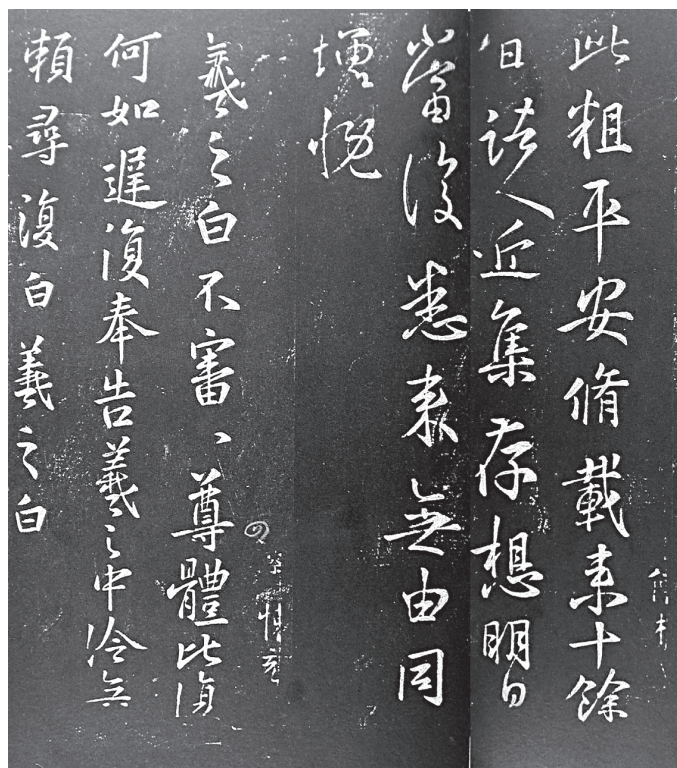 此粗平安脩載來十餘
日諸人近集存想明日
當復悉來無由同
增慨
羲之白不審、尊體比復
何如遲復奉告羲之中冷無
賴尋復白羲之白